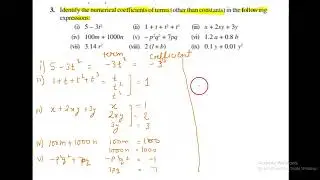 3. Identify the numerical coefficients of terms (other than constants) in the following
expressions:
(i) 5 – 3t² (ii) 1 + t + t² + t³ (iii) x + 2xy + 3y
(iv) 100m + 1000n (v) – p²q² + 7pq (vi) 1.2 a + 0.8 b
(vii) 3.14 r² (viii) 2 (l + b) (ix) 0.1 y + 0.01 y²
term coefficient
i) 5 - 3t² = -3t² = -3
ii) 1 + t + t² + t³ t = 1
t²
t³
iii) x + 2xy + 3y x = 1
2xy = 2
3y = 3
iv) 100m + 1000n 100m = 100
1000n = 1000
v) -p²q² + 7pq -p²q² = -1
7pq = 7